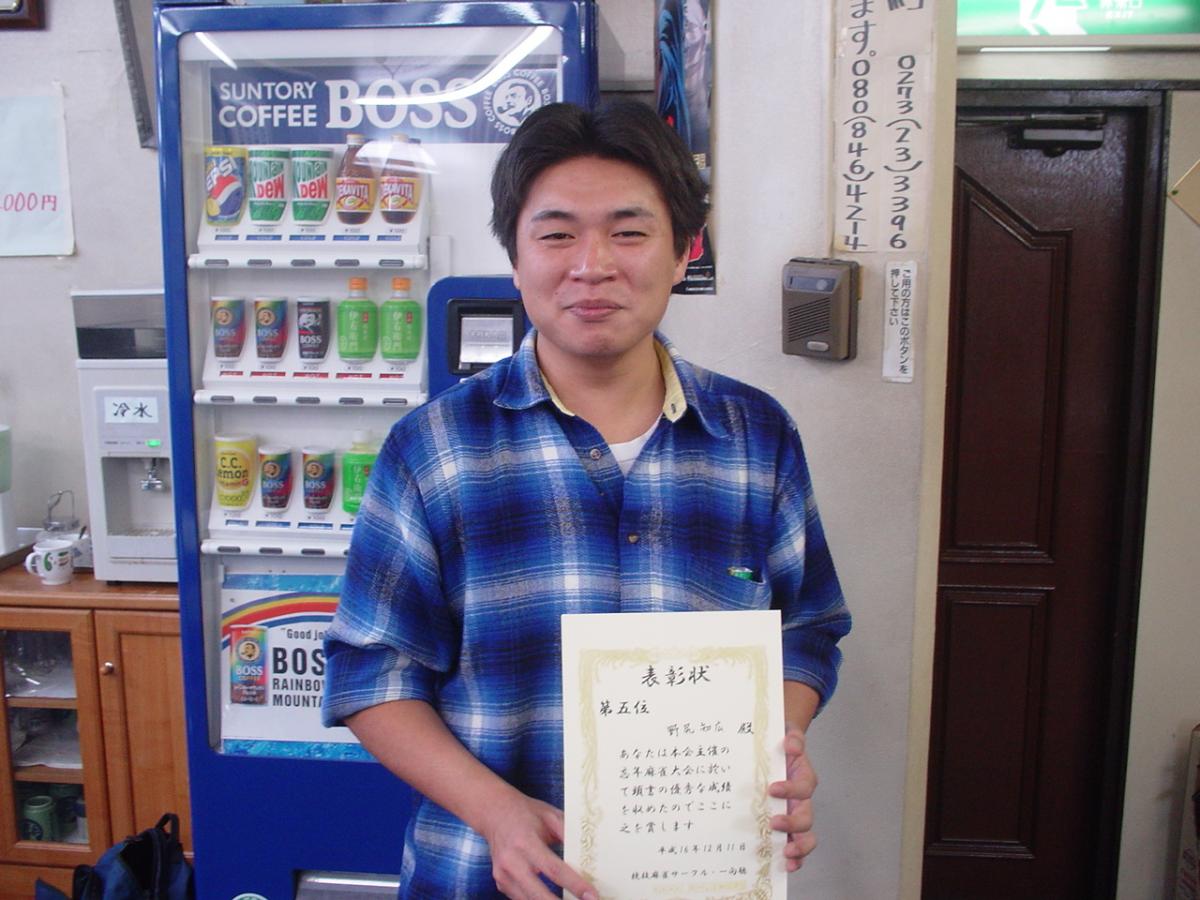 000円
冷水
SUNTORY
COFFEE
BOSS
DEW
DEW
DEKAVITA
BOSS
BOSS
伊右衛門
伊右衛門
C.C.
Lemon
BOSS
BOSS
"Good jo
BOSS
BOS
RAINBOW
MOUNTA
ます。080(846)4214
0273(23)3396
非常口
EXIT
ご用の方はこのボタンを
押して下さい
表彰状
第五位
野尻知広 殿
あなたは本会主催の
忘年麻雀大会に於い
て頭書の優秀な成績
を収めたのでここに
之を賞します
平成16年12月11日
競技麻雀サークル・一向聴